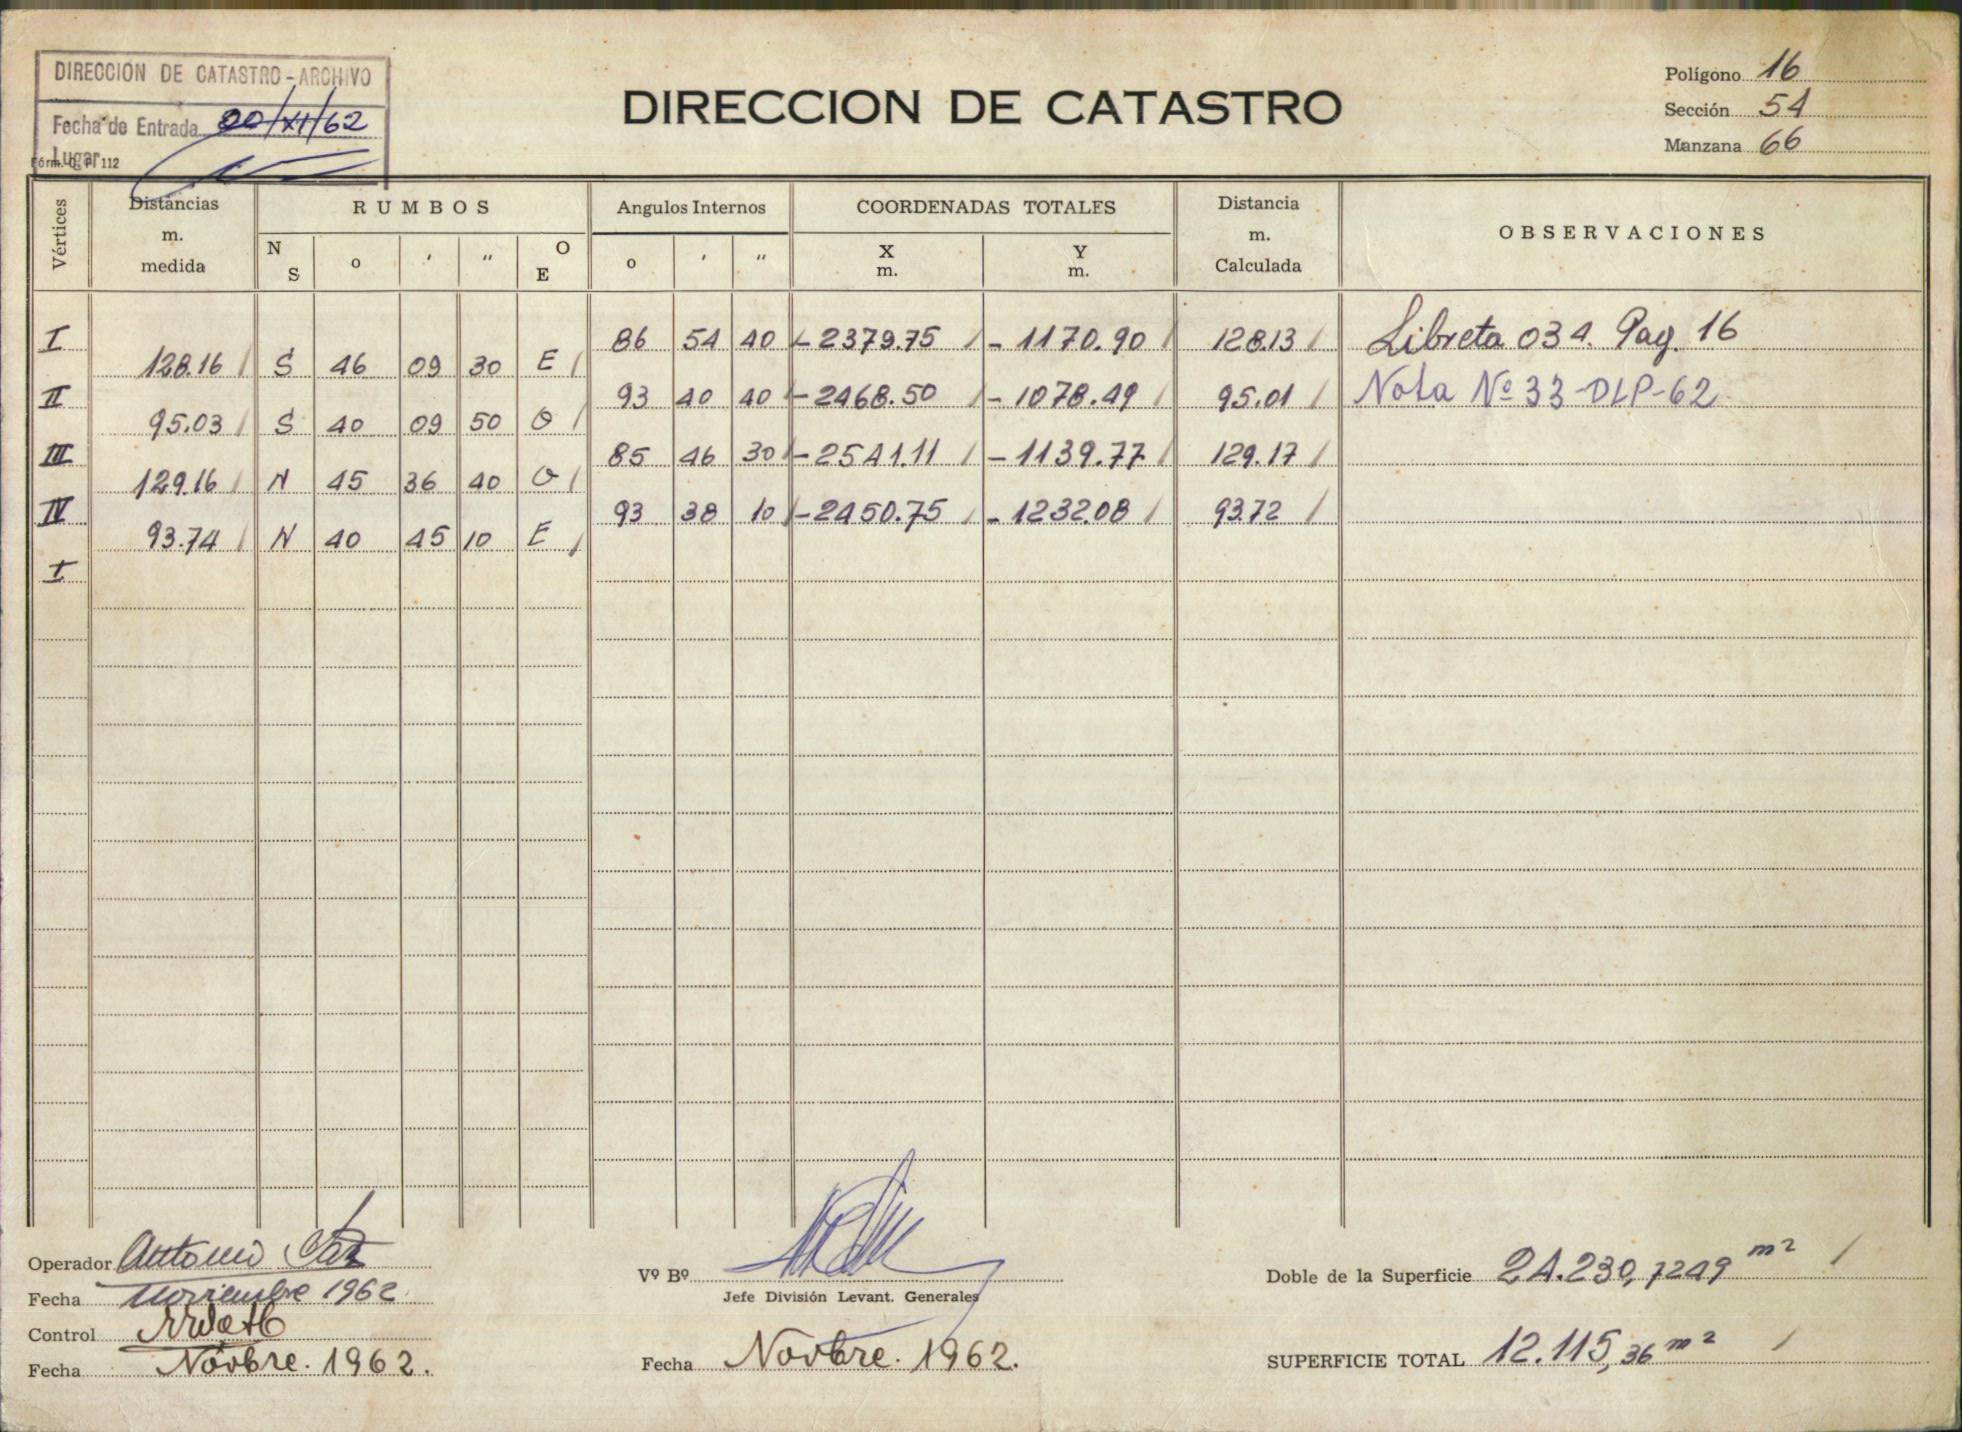 DIRECCION DE CATASTRO - ARCHIVO
Fecha de Entrada 20/XI/62
Lugar
Fórm. C. P. 112
DIRECCION DE CATASTRO
Polígono 16
Sección 54
Manzana 66
Vértices Distancias m. medida RUMBOS Angulos Internos COORDENADAS TOTALES Distancia m. Calculada OBSERVACIONES
N S o ' " O E o ' " X m. Y m.
I 86 54 40 -2379.75 -1170.90 128.13 Libreta 034. Pag. 16
128.16 S 46 09 30 E
II 93 40 40 -2468.50 -1078.49 95.01 Nota Nº 33-DLP-62
95.03 S 40 09 50 O
III 85 46 30 -2541.11 -1139.77 129.17
129.16 N 45 36 40 O
IV 93 38 10 -2450.75 -1232.08 93.72
93.74 N 40 45 10 E
I
Operador Antonio
Fecha Noviembre 1962
Control
Fecha Novbre. 1962.
Vº Bº
Jefe División Levant. Generales
Fecha Novbre. 1962.
Doble de la Superficie 24.230,7249 m²
SUPERFICIE TOTAL 12.115,36 m²